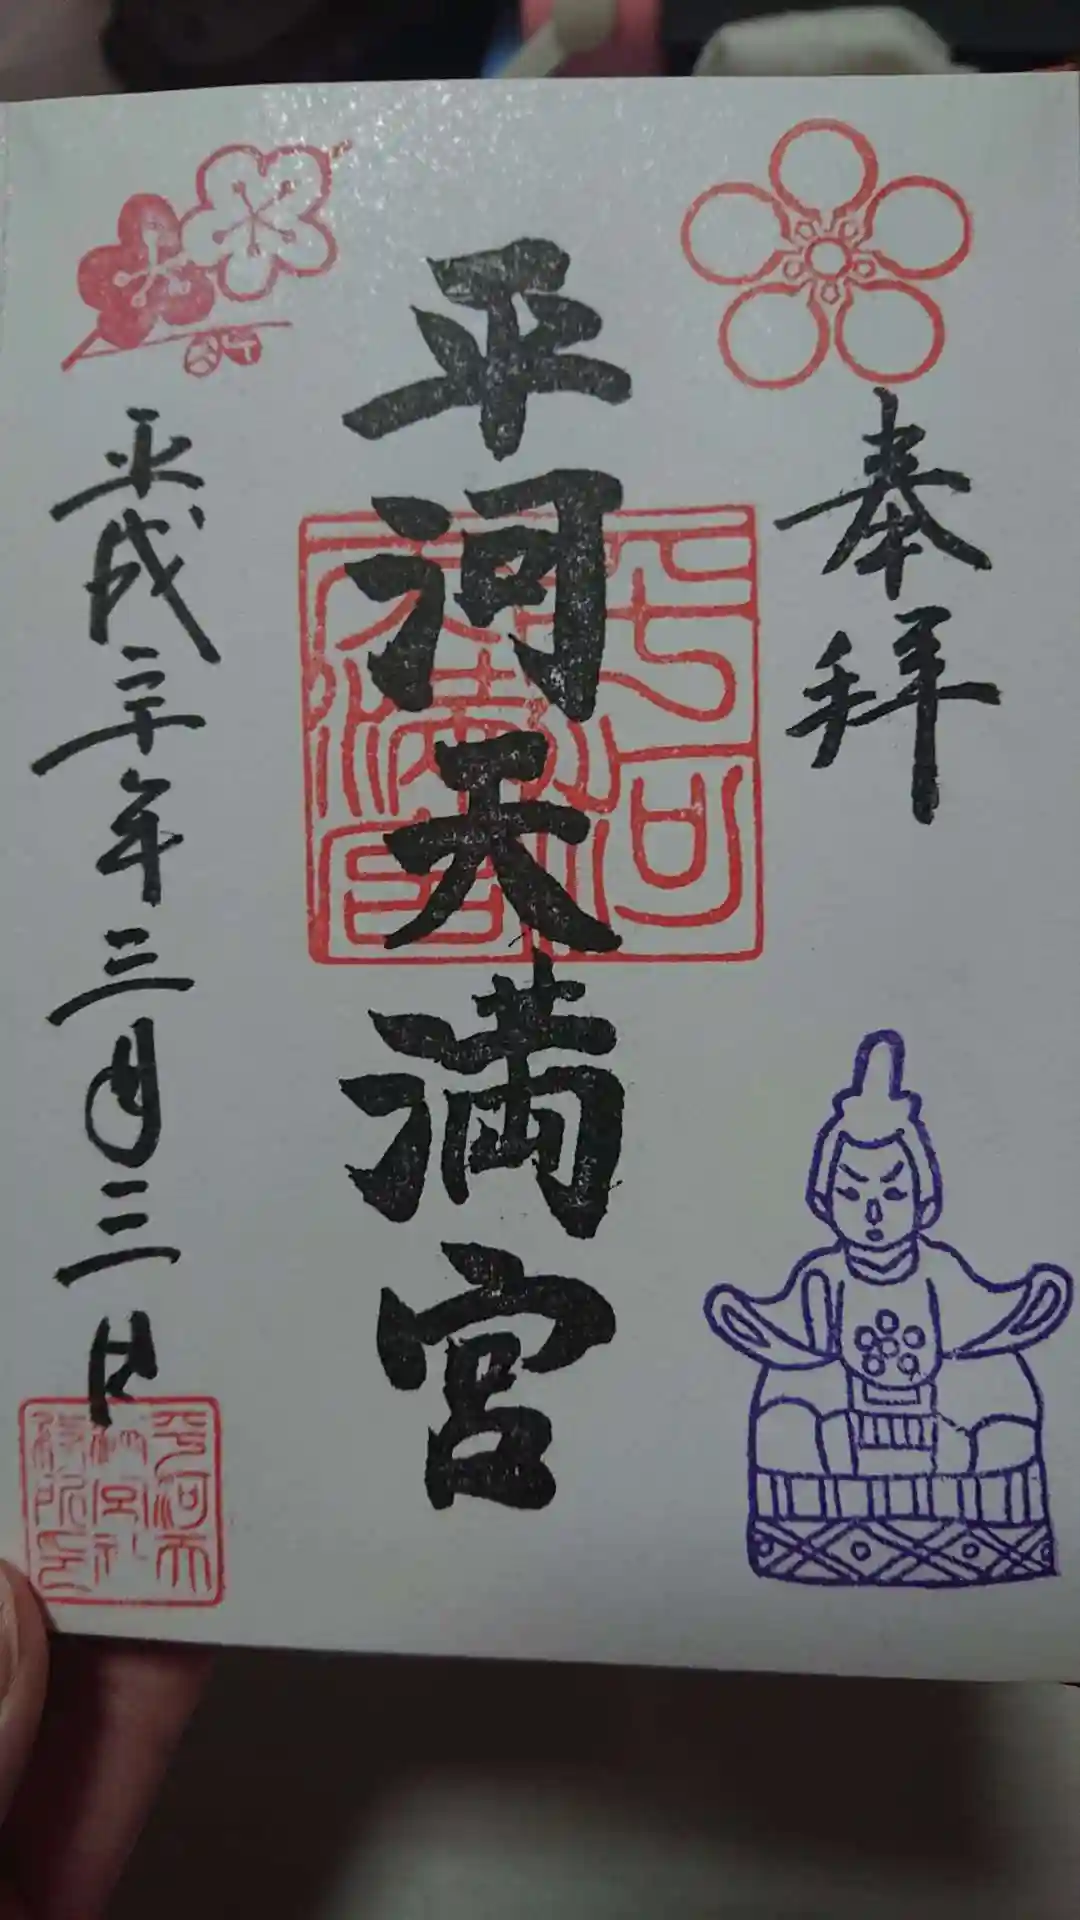 奉拝
平河天満宮
平成三十年三月三日
平河天満宮
平河天
満宮社
務所印